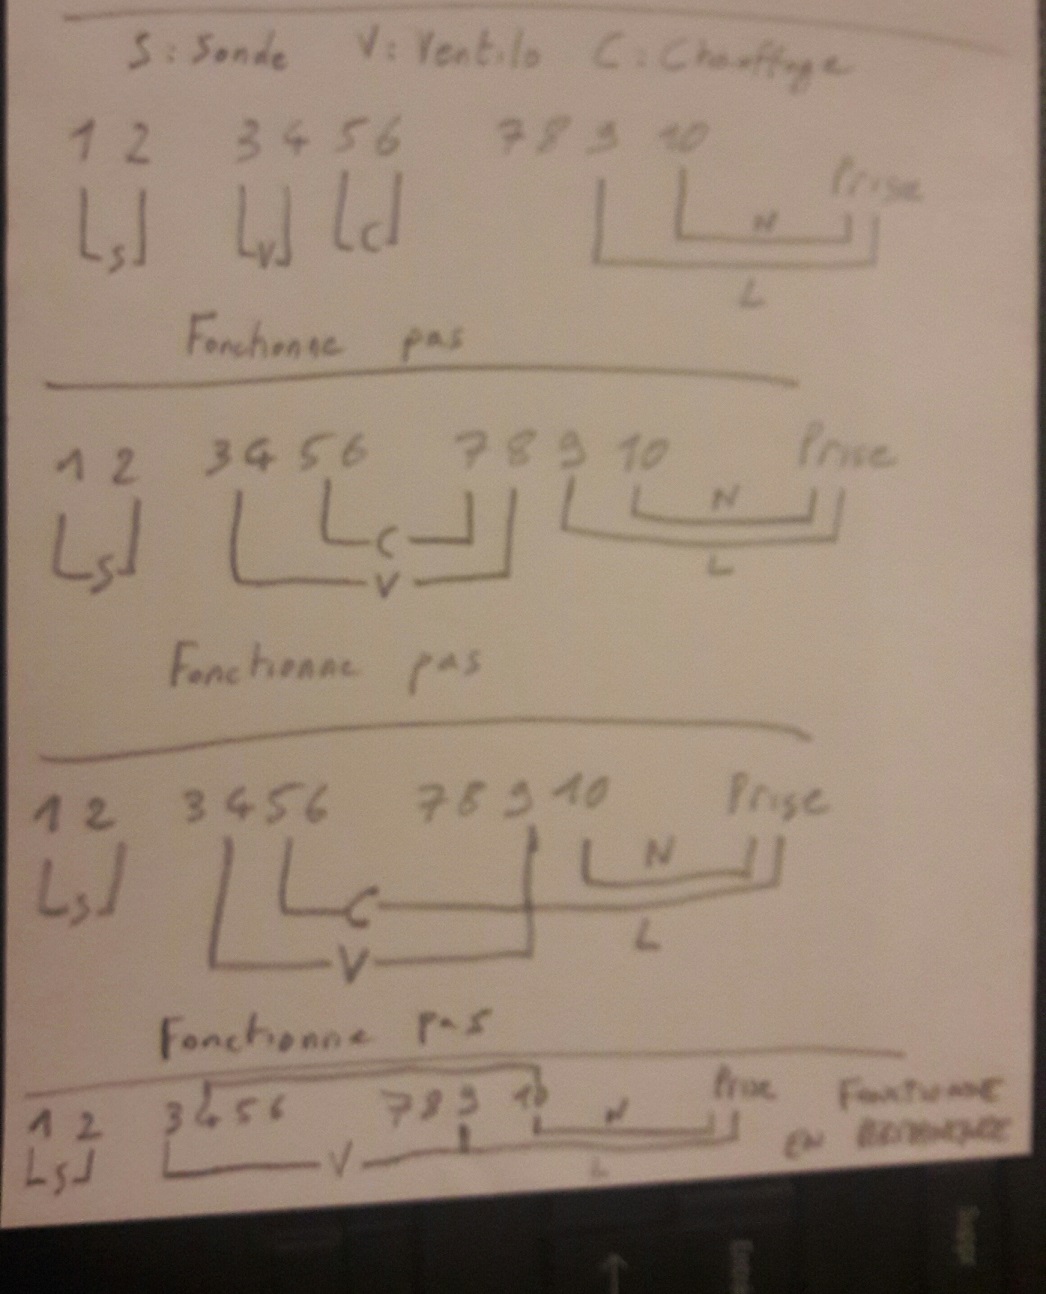 S : Sonde V : Ventilo C : Chauffage
1 2 3 4 5 6 7 8 9 10 Prise
S V C N
L
Fonctionne pas
1 2 3 4 5 6 7 8 9 10 Prise
N
S C L
V
Fonctionne pas
1 2 3 4 5 6 7 8 9 10 Prise
N
S C L
V
Fonctionne pas
1 2 3 4 5 6 7 8 9 10 Prise FONCTIONNE
N EN
S V L